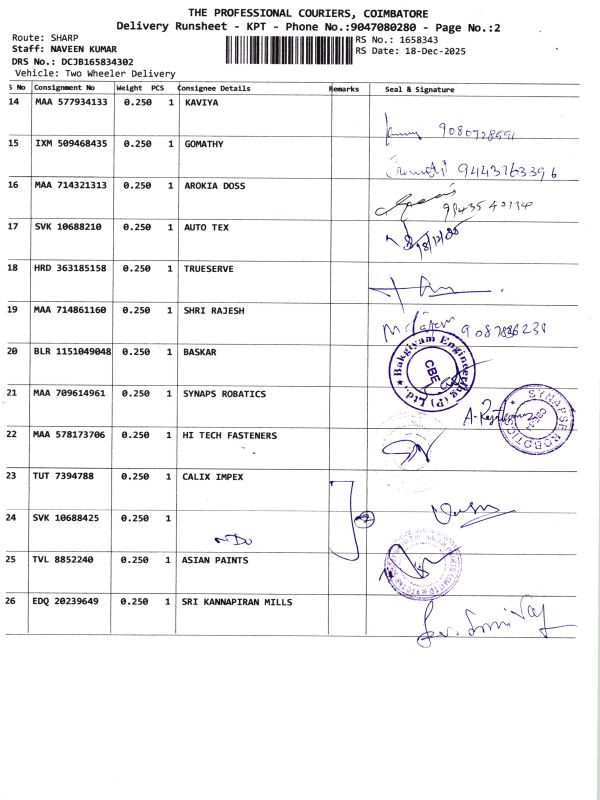 THE PROFESSIONAL COURIERS, COIMBATORE
Delivery Runsheet - KPT - Phone No.:9047080280 - Page No.:2
Route: SHARP
RS No.: 1658343
Staff: NAVEEN KUMAR
RS Date: 18-Dec-2025
DRS No.: DCJB165834302
Vehicle: Two Wheeler Delivery
S No Consignment No Weight PCS Consignee Details Remarks Seal & Signature
14 MAA 577934133 0.250 1 KAVIYA
15 IXM 509468435 0.250 1 GOMATHY
9443763396
16 MAA 714321313 0.250 1 AROKIA DOSS
17 SVK 10688210 0.250 1 AUTO TEX
18/12/25
18 HRD 363185158 0.250 1 TRUESERVE
19 MAA 714861160 0.250 1 SHRI RAJESH
20 BLR 1151049048 0.250 1 BASKAR
Bakgiyam Engineering (P) Ltd.,
CBE
21 MAA 709614961 0.250 1 SYNAPS ROBATICS
SYNAPSE ROBOTICS
22 MAA 578173706 0.250 1 HI TECH FASTENERS
23 TUT 7394788 0.250 1 CALIX IMPEX
24 SVK 10688425 0.250 1
25 TVL 8852240 0.250 1 ASIAN PAINTS
26 EDQ 20239649 0.250 1 SRI KANNAPIRAN MILLS